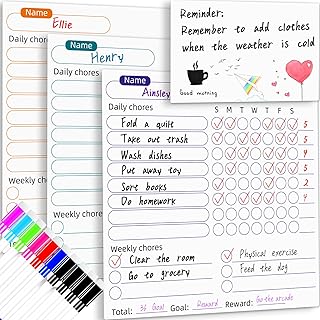 Name
Ellie
Daily chores
Weekly chores
Name
Henry
Daily chores
Weekly chores
Name
Ainsley
Daily chores
S M T W T F S
Fold a quilt 5
Take out trash 5
Wash dishes 4
Put away toy 5
Sort books 2
Do homework 4
Weekly chores
Clear the room
Go to grocery
Physical exercise
Feed the dog
Total: 36 Goal: Reward Reward: Go the arcade
Reminder:
Remember to add clothes
when the weather is cold
Good morning